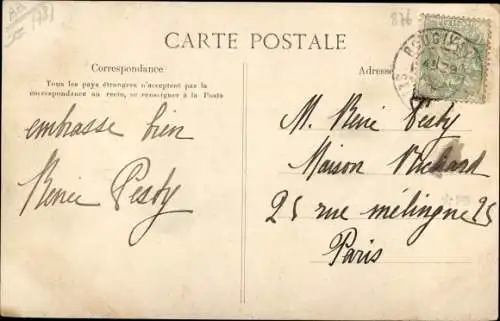 CARTE POSTALE
Correspondance
Tous les pays étrangers n'acceptent pas la
correspondance au recto, se renseigner à la Poste
embrasse bien
Renée Pesty
Adresse
M. René Pesty
Maison
25 rue mélingue 25
Paris